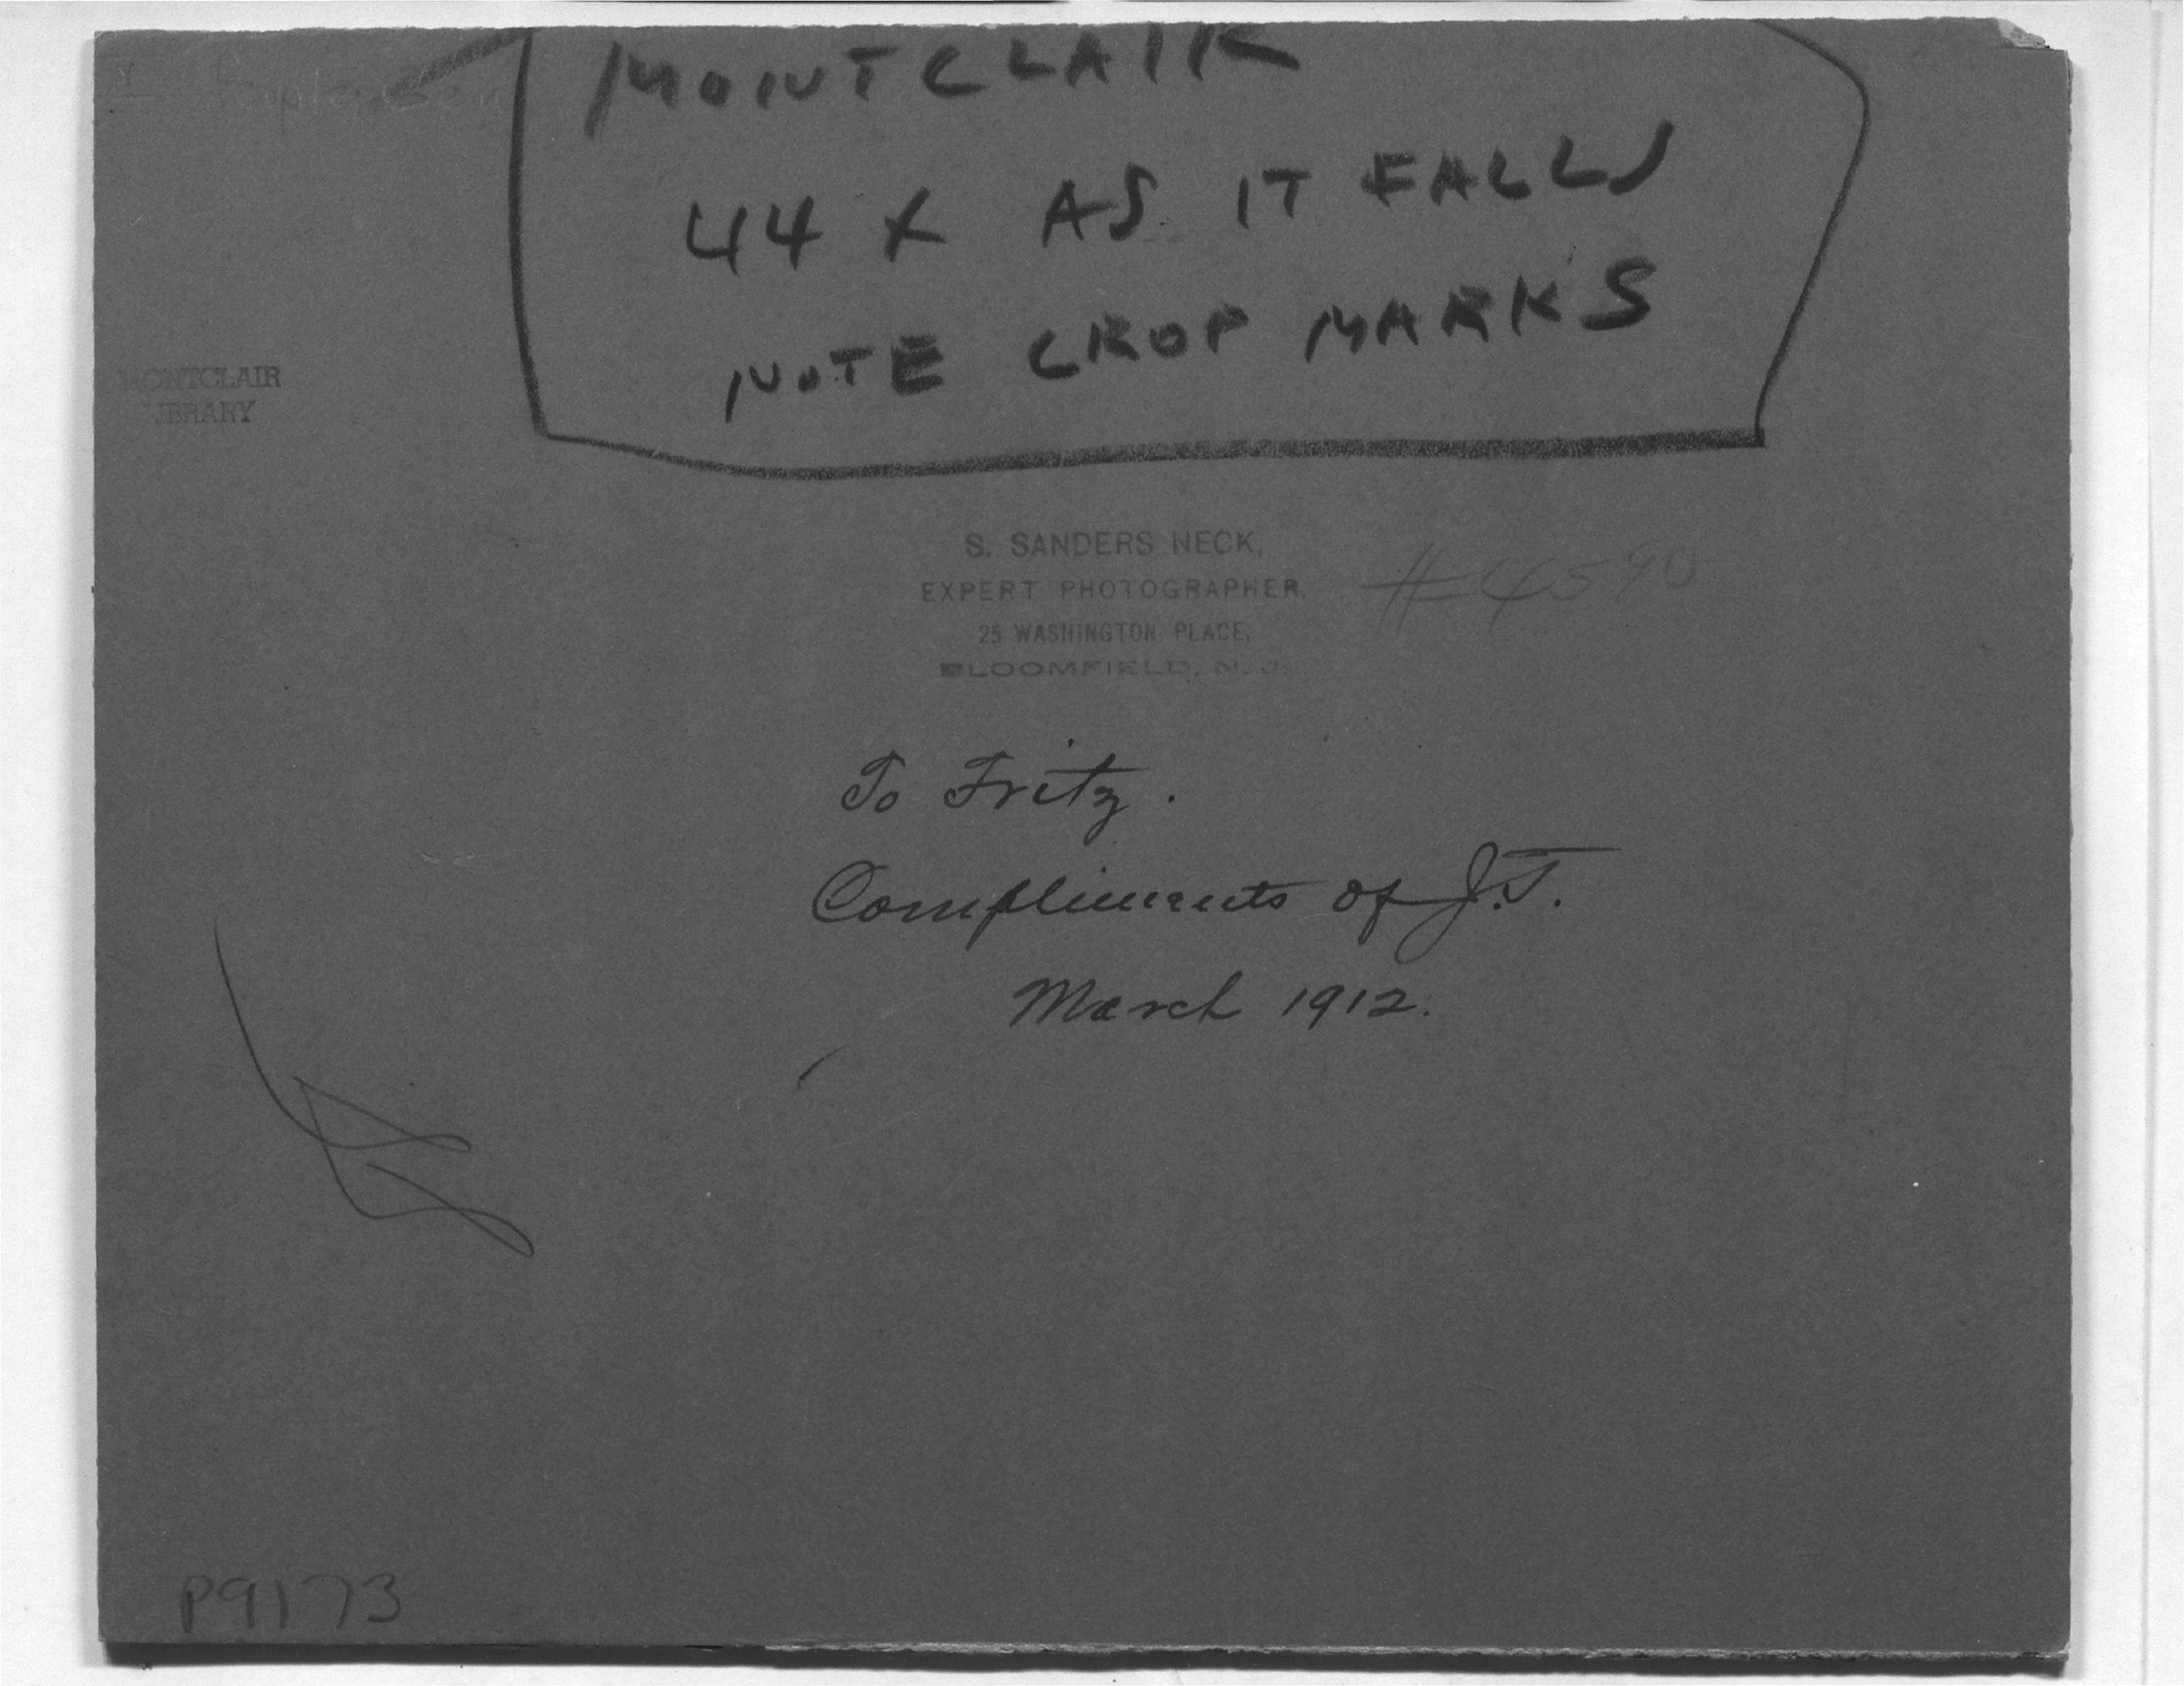 MONTCLAIR
44 X AS IT FALLS
NOTE CROP MARKS
MONTCLAIR
LIBRARY
S. SANDERS NECK,
EXPERT PHOTOGRAPHER,
25 WASHINGTON PLACE,
BLOOMFIELD, N. J.
#4590
To Fritz.
Compliments of J.T.
March 1912.
P9173